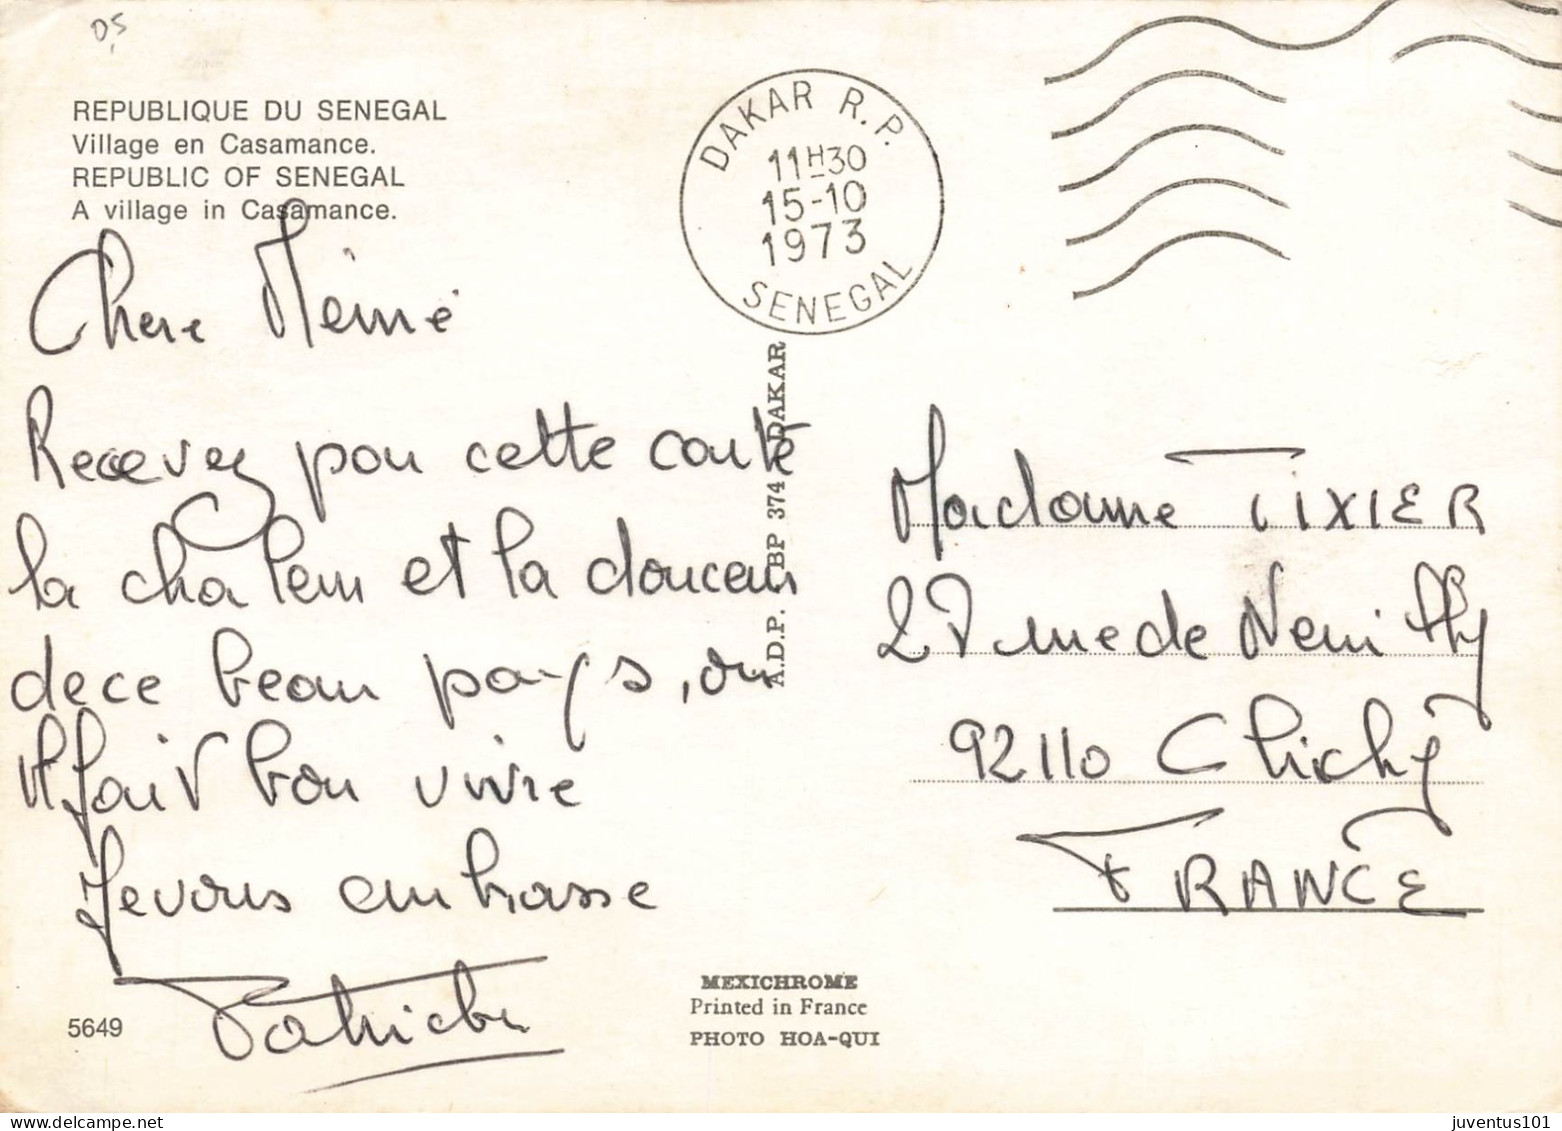 D5
REPUBLIQUE DU SENEGAL
Village en Casamance.
REPUBLIC OF SENEGAL
A village in Casamance.
DAKAR R.P.
11H30
15-10
1973
SENEGAL
Chere Mémé
Recevez par cette carte
la chaleur et la douceur
de ce beau pays, ou
il fait bon vivre
Je vous embrasse
A.D.P. BP 374 DAKAR
Madame TIXIER
27 rue de Neuilly
92110 Clichy
FRANCE
MEXICHROME
Printed in France
PHOTO HOA-QUI
5649
juventus101